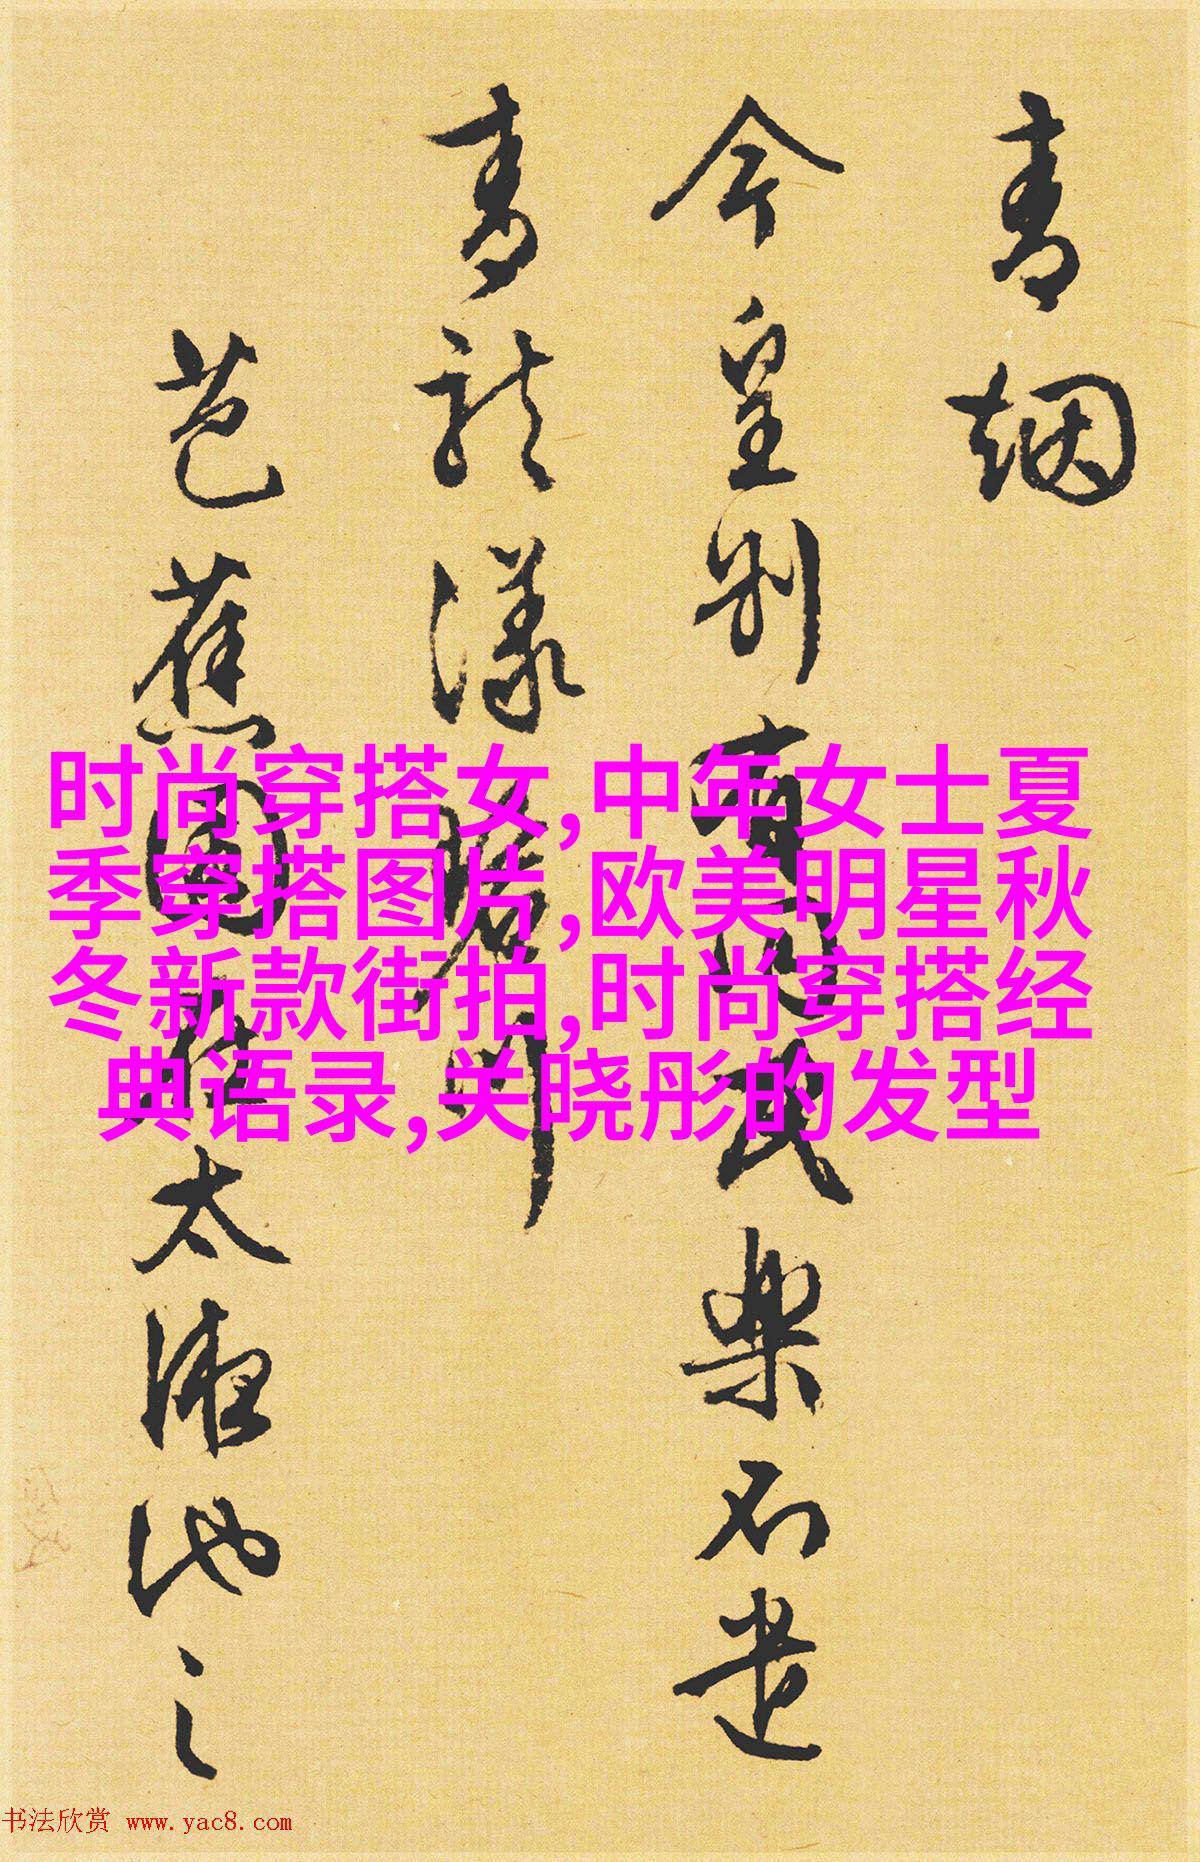 青烟
今皇别有同民樂不遣
青龍漾川
芭蕉園在太液池之
时尚穿搭女,中年女士夏
季穿搭图片,欧美明星秋
冬新款街拍,时尚穿搭经
典语录,关晓彤的发型
书法欣赏 www.yac8.com